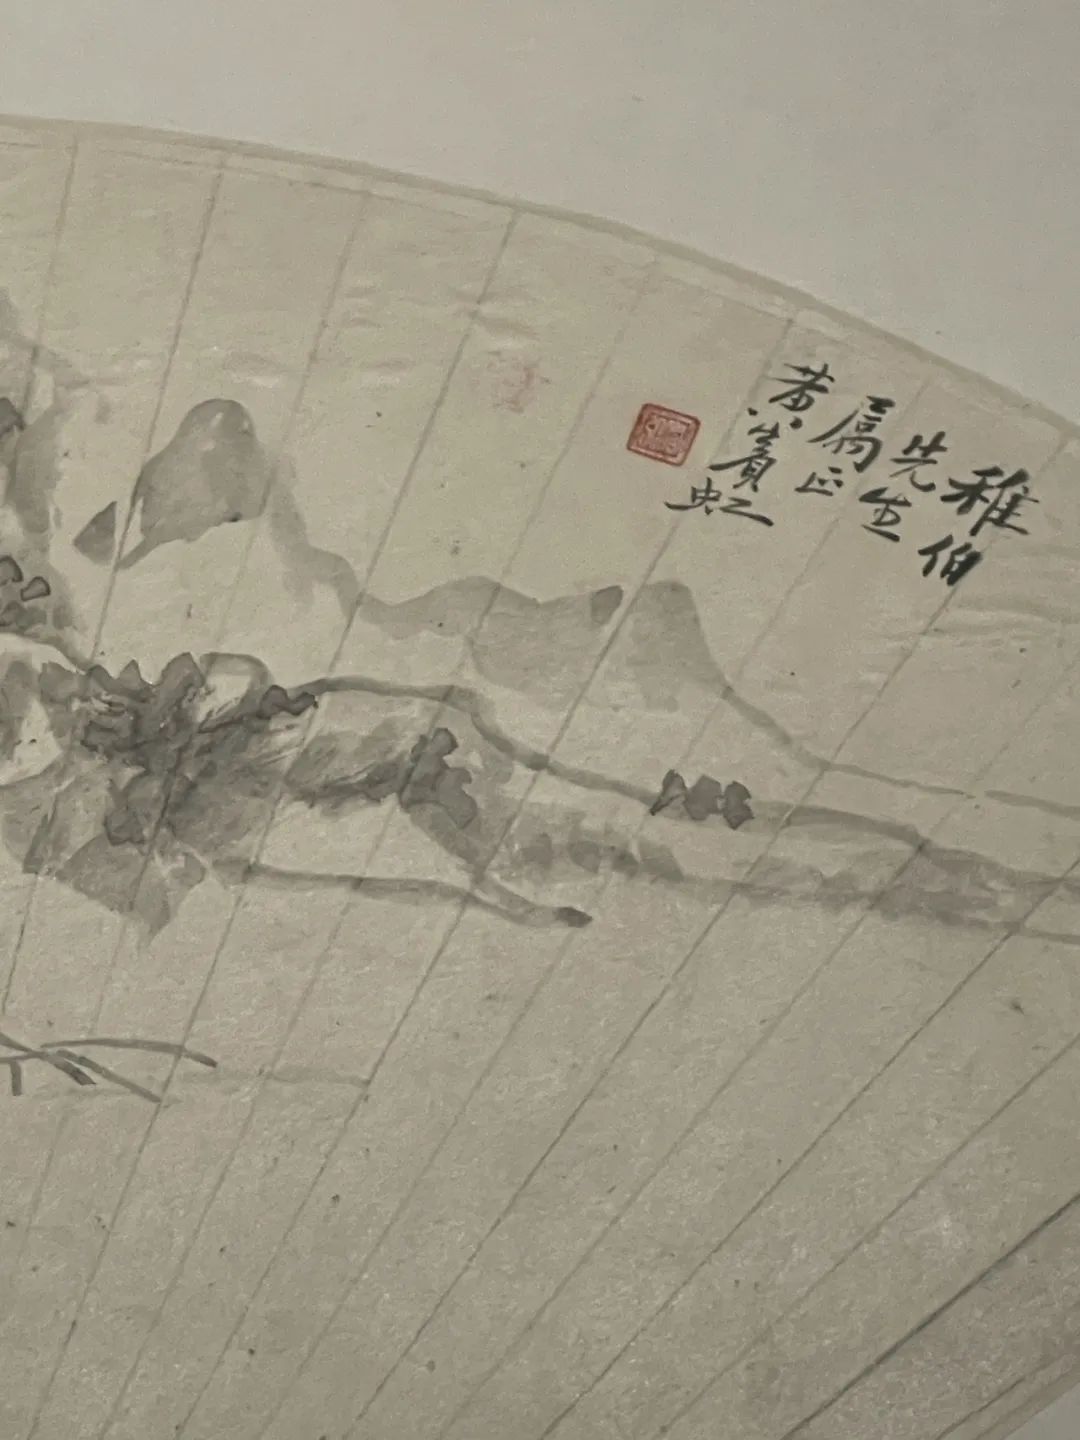 稚伯
先生
属正
黄賓虹